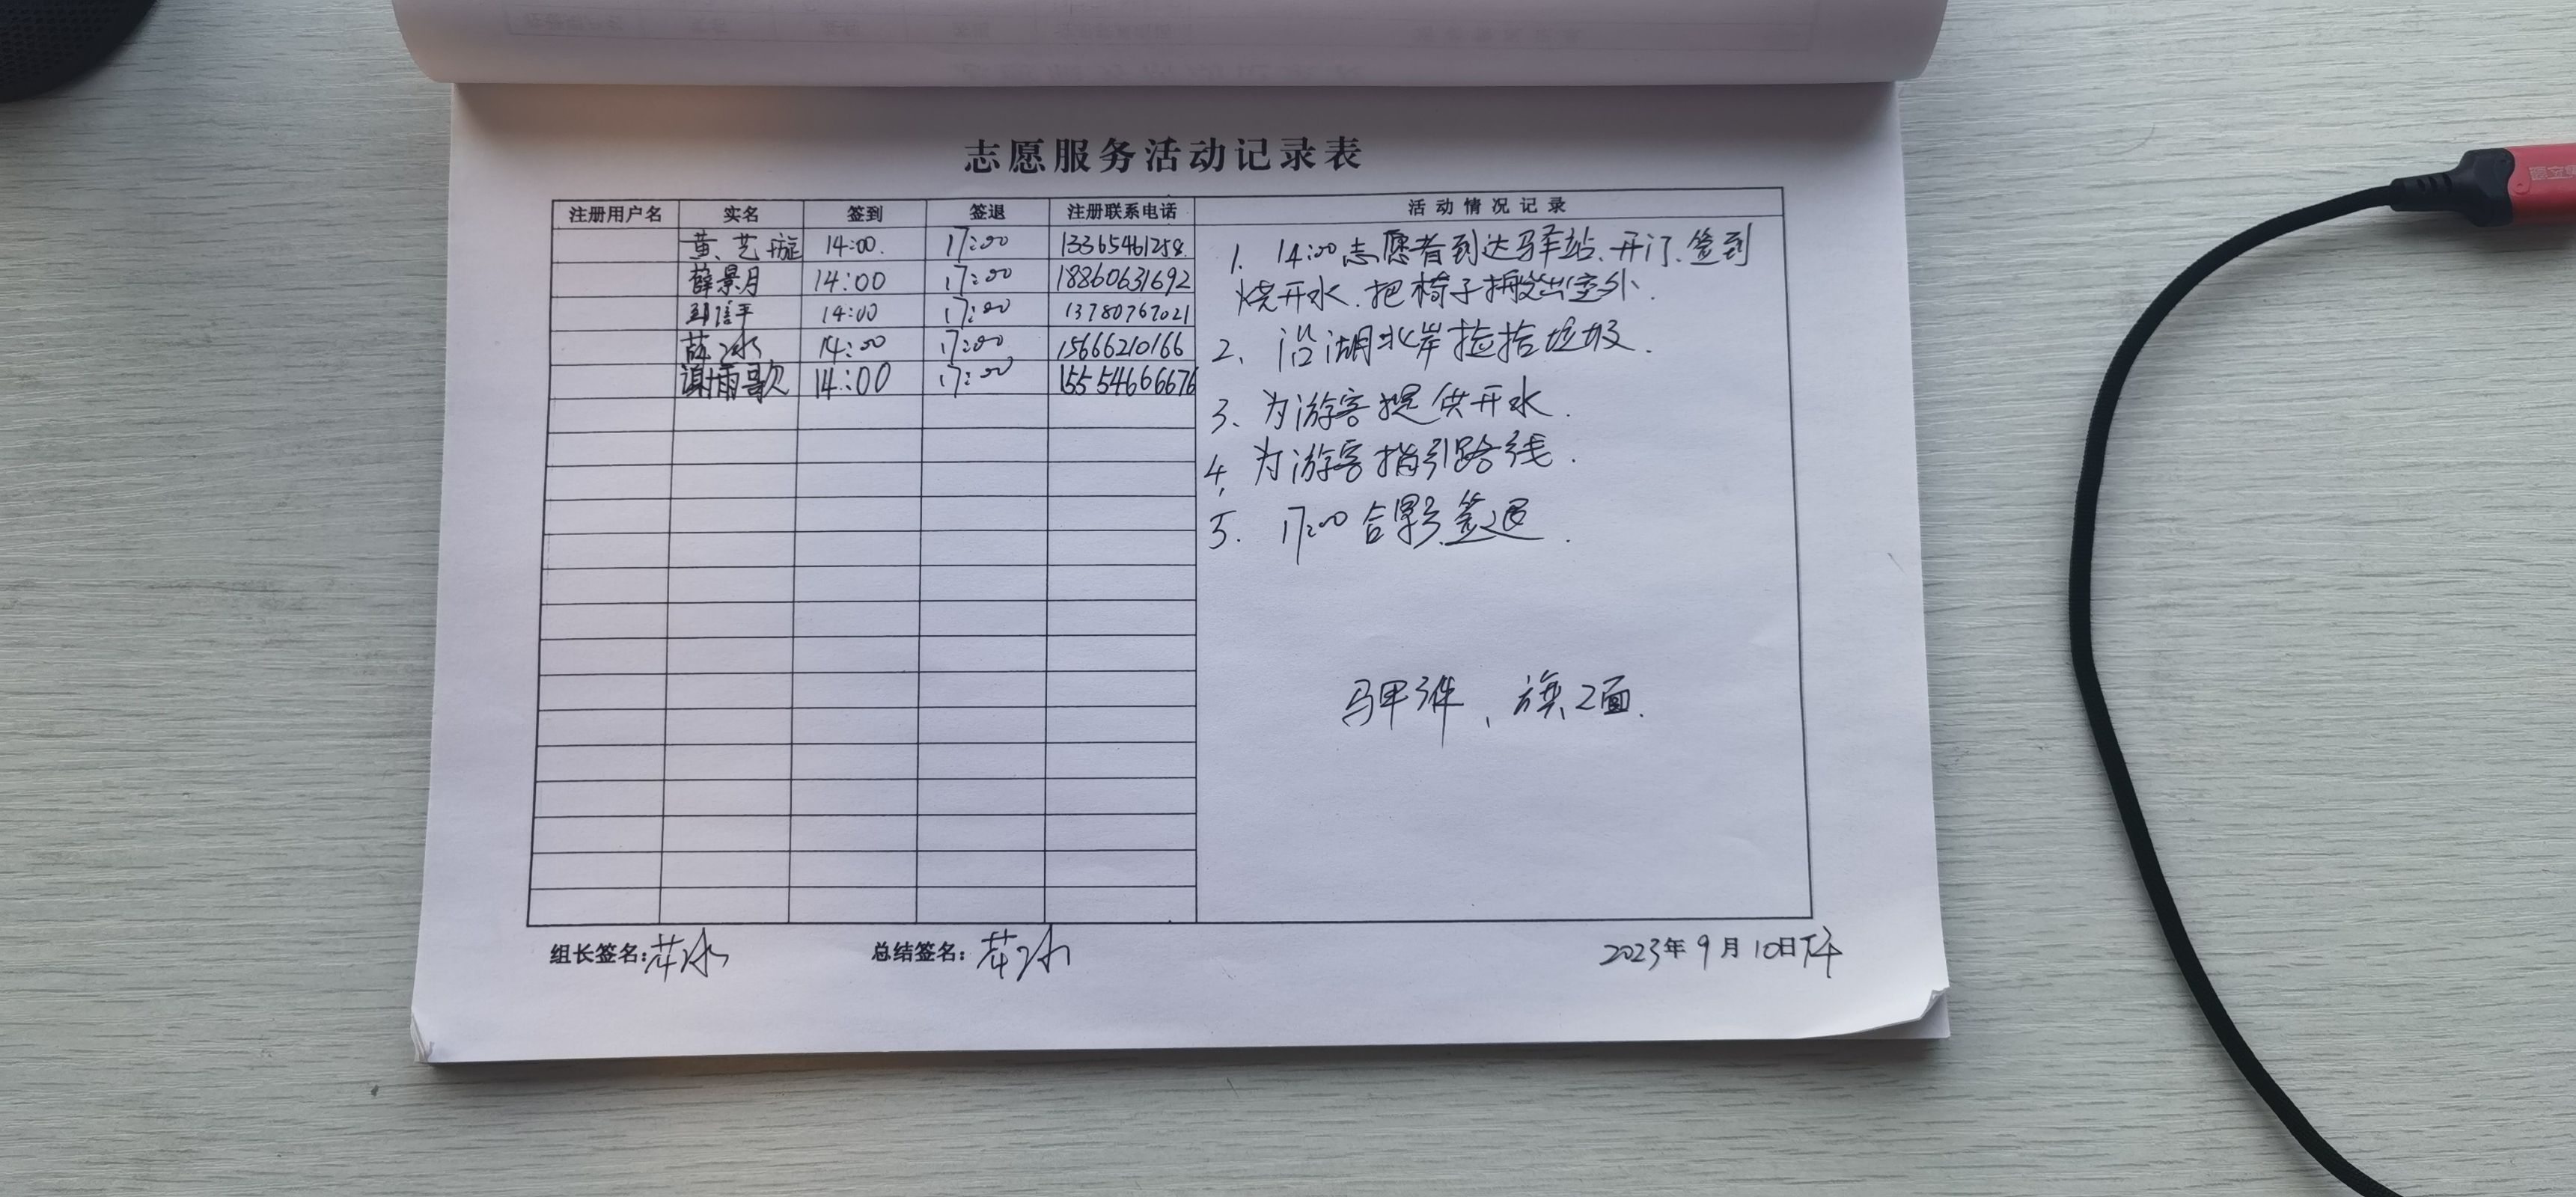 志愿服务活动记录表
注册用户名 实名 签到 签退 注册联系电话 活动情况记录
黄艺璇 14:00. 17:00 13365461258.
薛景月 14:00 17:00 18860631692
信平 14:00 17:00 13780767021
薛冰 14:00 17:00 15666210166
谢雨歌 14:00 17:00 15554666676
1. 14:00志愿者到达驿站、开门、签到
烧开水、把椅子搬出室外.
2、沿湖北岸捡拾垃圾.
3、为游客提供开水.
4、为游客指引路线.
5. 17:00合影签退.
马甲3件、旗2面.
组长签名: 总结签名:
2023年9月10日下午